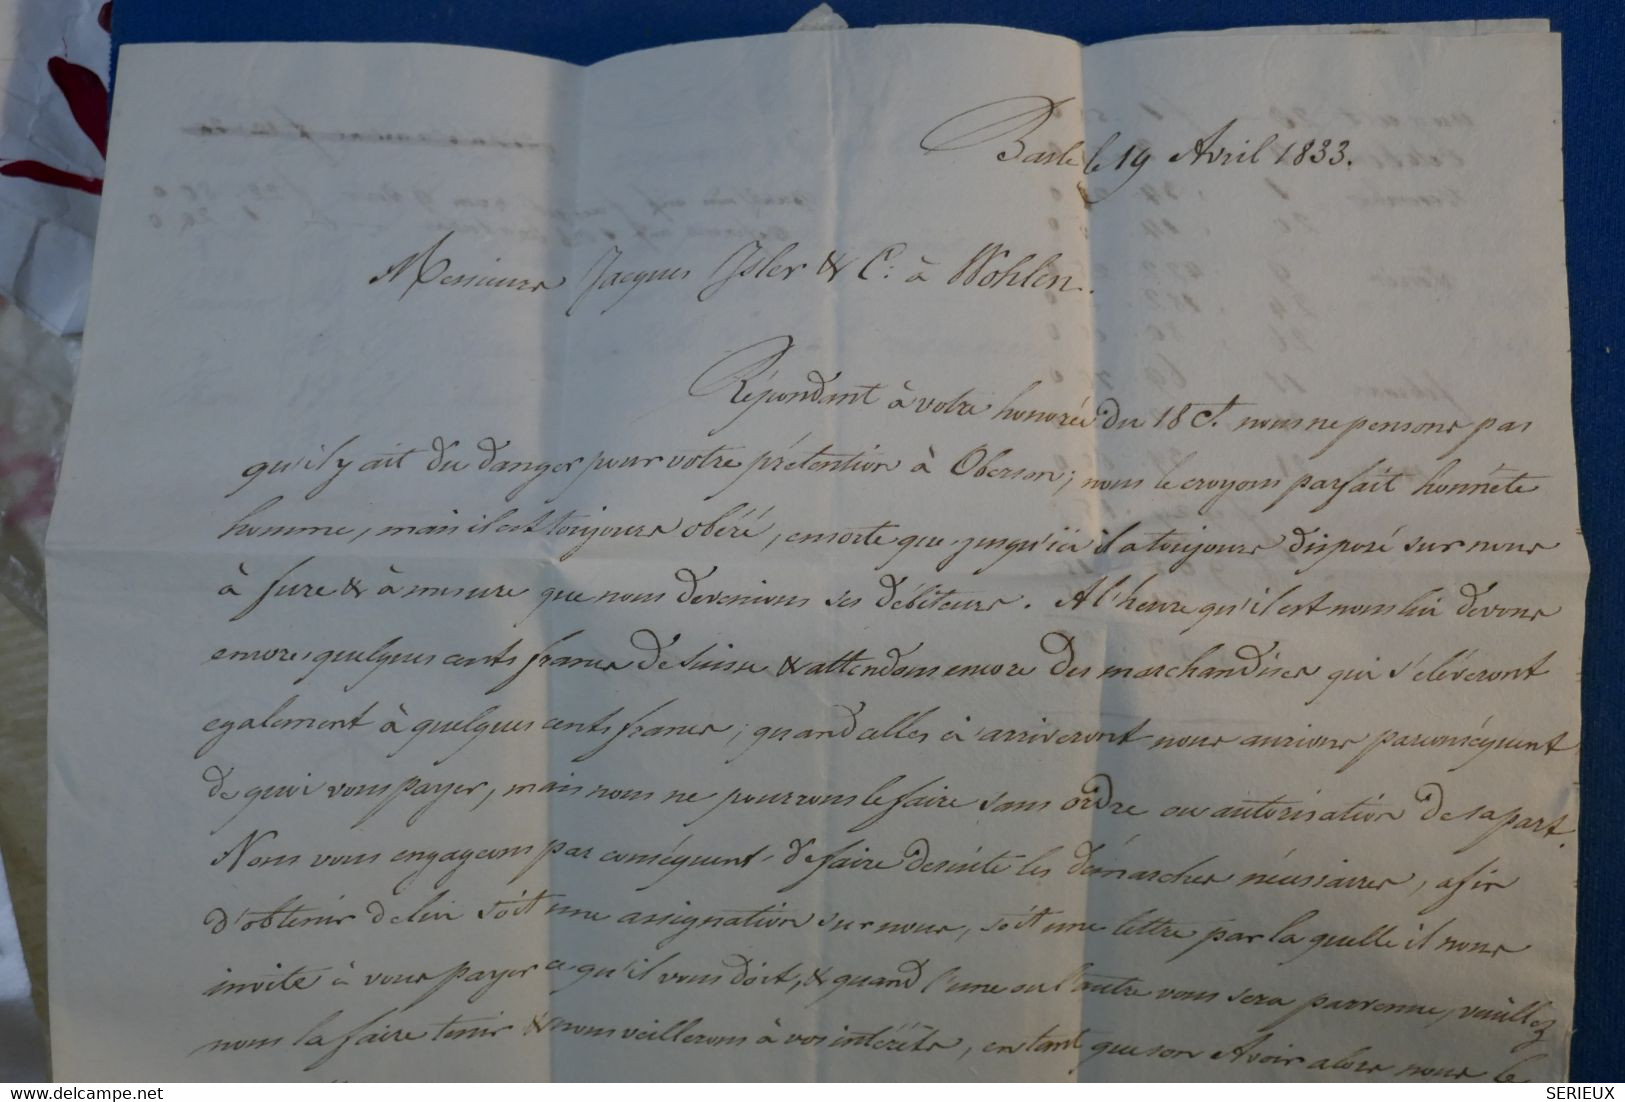 Basle le 19 Avril 1833.
Messieurs Jacques Isler & C. à Wohlen.
Répondant à votre honorée du 18 Ct. nous ne pensons pas
qu'il y ait du danger pour votre prétention à Oberson; nous le croyons parfait honnête
homme, mais il est toujours obéré, ensorte que jusqu'ici il a toujours disposé sur nous
à fure & à mesure que nous devenions ses débiteurs. A l'heure qu'il est nous lui devons
encore quelques cents francs de Suisse & attendons encore des marchandises qui s'éléveront
egalement à quelques cents francs; quand elles arriveront nous aurions parconséquent
de quoi vous payer, mais nous ne pourrons le faire sans ordre ou autorisation de sa part.
Nous vous engageons par conséquent de faire desuite les démarches nécessaires, afin
d'obtenir de lui soit une assignation sur nous, soit une lettre par la quelle il nous
invite à vous payer ce qu'il vous doit, & quand l'une ou l'autre vous sera parvenue, veuillez
nous la faire tenir & nous veillerons à vos intérêts, en tant que son Avoir alors nous le
SERIEUX